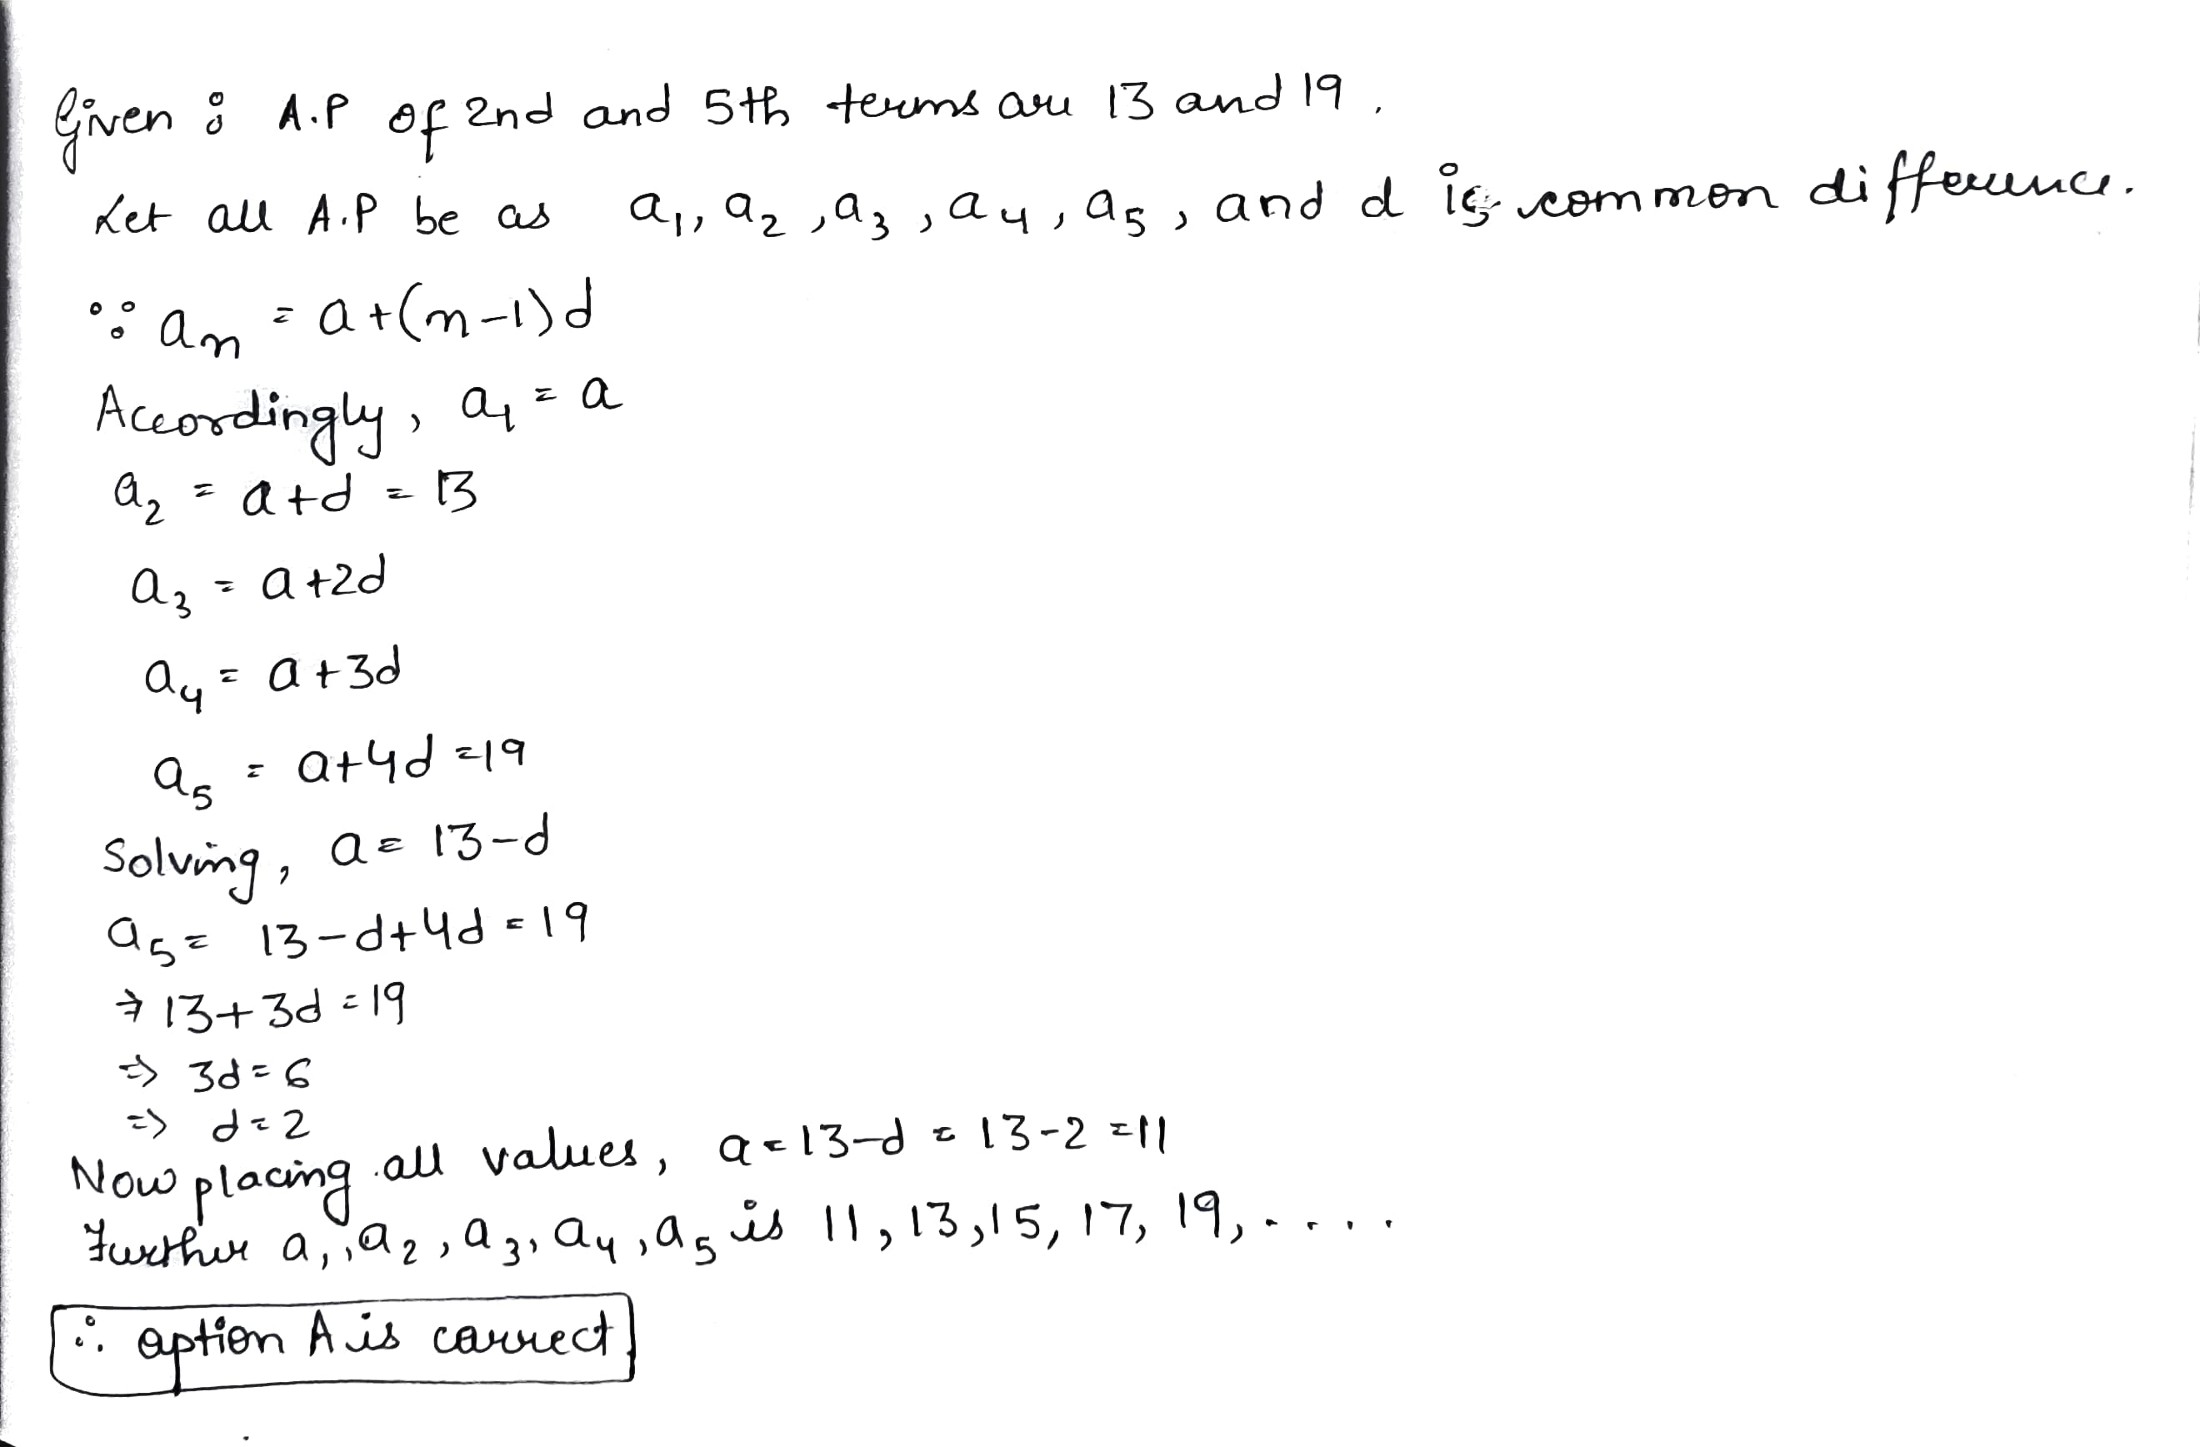 Given : A.P of 2nd and 5th terms are 13 and 19.
Let all A.P be as a₁, a₂, a₃, a₄, a₅, and d is common difference.
∵ aₙ = a+(n-1)d
Accordingly, a₁ = a
a₂ = a+d = 13
a₃ = a+2d
a₄ = a+3d
a₅ = a+4d =19
Solving, a= 13-d
a₅= 13-d+4d=19
⇒ 13+3d=19
⇒ 3d=6
⇒ d=2
Now placing all values, a=13-d = 13-2 =11
Further a₁, a₂, a₃, a₄, a₅ is 11, 13, 15, 17, 19, ....
∴ option A is correct